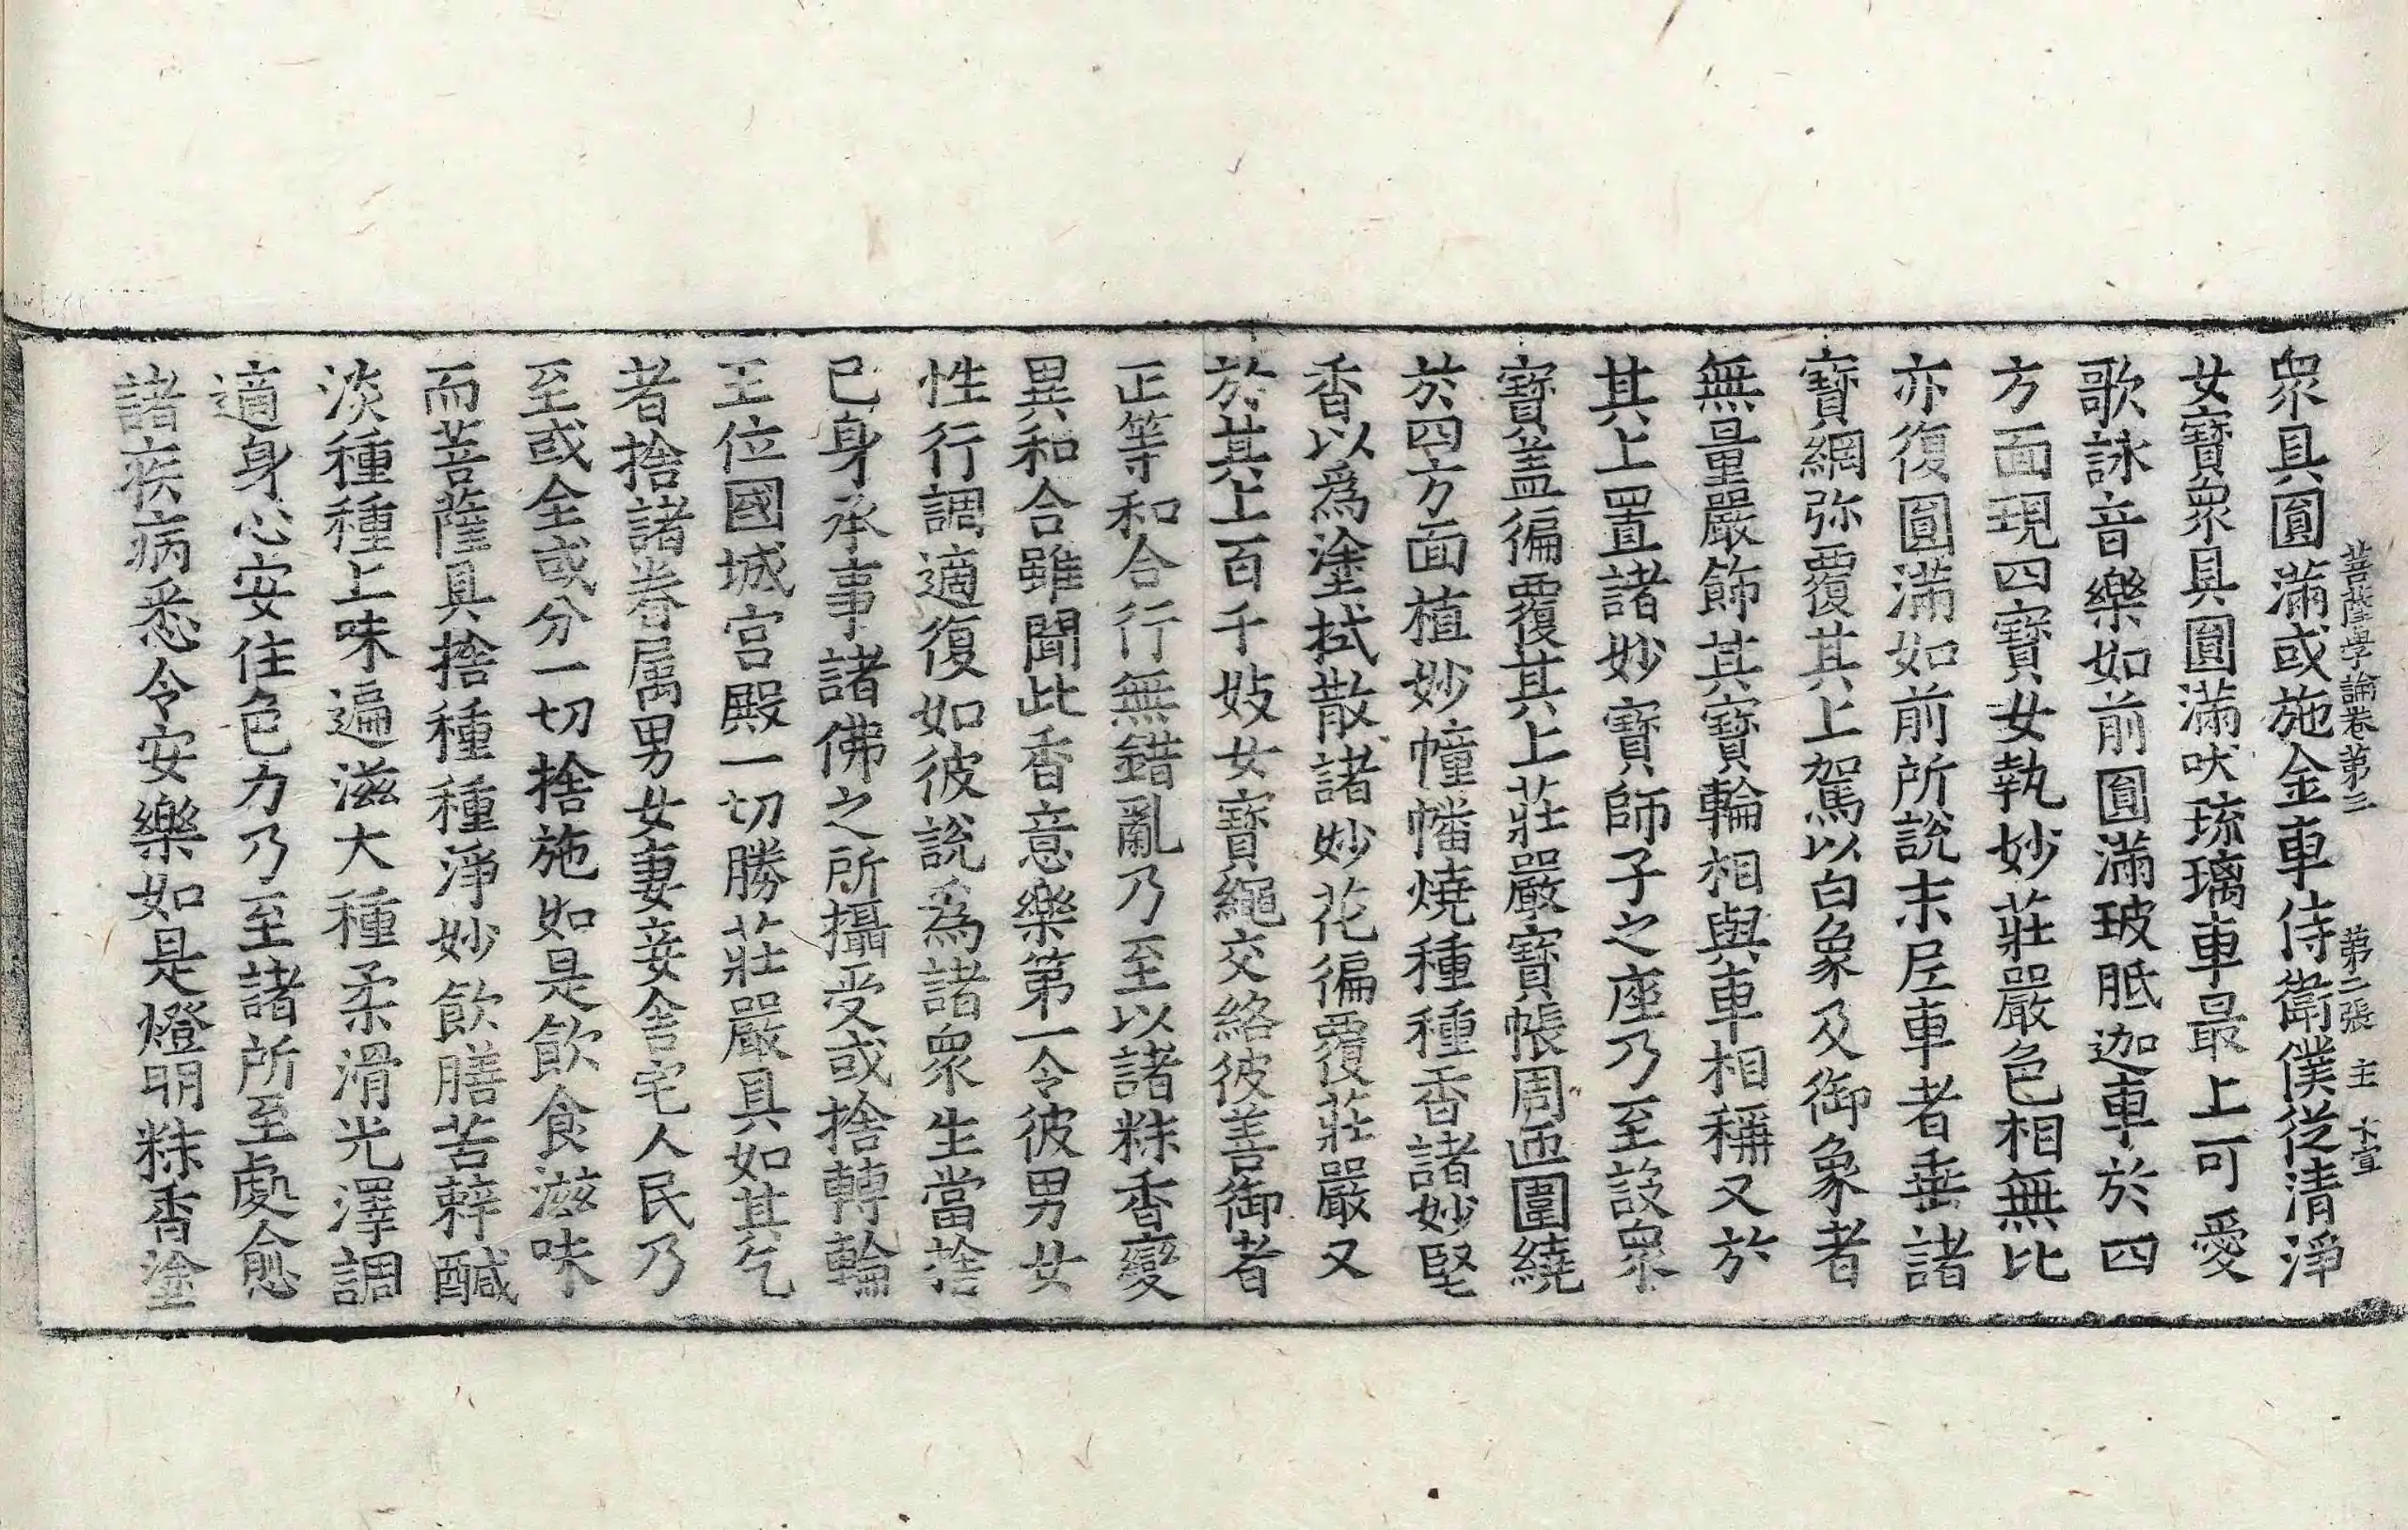 菩薩學論卷第三　第二張　主　大宣
衆具圓滿或施金車侍衛僕從清淨
女寶衆具圓滿吠琉璃車最上可愛
歌詠音樂如前圓滿玻胝迦車於四
方面現四寶女執妙莊嚴色相無比
亦復圓滿如前所說末尼車者垂諸
寶網弥覆其上駕以白象及御象者
無量嚴飾其寶輪相與車相稱又於
其上置諸妙寶師子之座乃至設衆
寶盖徧覆其上莊嚴寶帳周帀圍繞
於四方面植妙幢幡燒種種香諸妙堅
香以爲塗拭散諸妙花徧覆莊嚴又
於其上百千妓女寶繩交絡彼善御者
正等和合行無錯亂乃至以諸粖香變
異和合雖聞此香意樂第一令彼男女
性行調適復如彼說爲諸衆生當捨
已身承事諸佛之所攝受或捨轉輪
王位國城宮殿一切勝莊嚴具如其乞
者捨諸眷属男女妻妾舍宅人民乃
至或全或分一切捨施如是飲食滋味
而菩薩具捨種種淨妙飲膳苦辢醎
淡種種上味遍滋大種柔滑光澤調
適身心安住色力乃至諸所至處愈
諸疾病悉令安樂如是燈明粖香塗